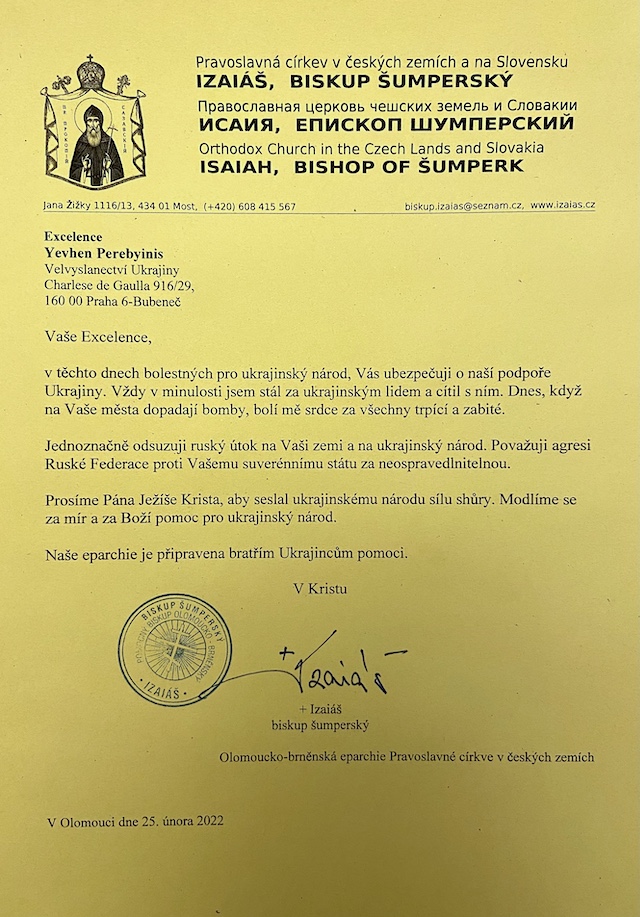 Pravoslavná církev v českých zemích a na Slovensku
IZAIÁŠ, BISKUP ŠUMPERSKÝ
Православная церковь чешских земель и Словакии
ИСАИЯ, ЕПИСКОП ШУМПЕРСКИЙ
Orthodox Church in the Czech Lands and Slovakia
ISAIAH, BISHOP OF ŠUMPERK
Jana Žižky 1116/13, 434 01 Most, (+420) 608 415 567 biskup.izaias@seznam.cz, www.izaias.cz
Excelence
Yevhen Perebyinis
Velvyslanectví Ukrajiny
Charlese de Gaulla 916/29,
160 00 Praha 6-Bubeneč
Vaše Excelence,
v těchto dnech bolestných pro ukrajinský národ, Vás ubezpečuji o naší podpoře
Ukrajiny. Vždy v minulosti jsem stál za ukrajinským lidem a cítil s ním. Dnes, když
na Vaše města dopadají bomby, bolí mě srdce za všechny trpící a zabité.
Jednoznačně odsuzuji ruský útok na Vaši zemi a na ukrajinský národ. Považuji agresi
Ruské Federace proti Vašemu suverénnímu státu za neospravedlnitelnou.
Prosíme Pána Ježíše Krista, aby seslal ukrajinskému národu sílu shůry. Modlíme se
za mír a za Boží pomoc pro ukrajinský národ.
Naše eparchie je připravena bratřím Ukrajincům pomoci.
V Kristu
BISKUP ŠUMPERSKÝ
POMOCNÝ BISKUP OLOMOUCKO-BRNĚNSKÝ
• IZAIÁŠ •
+ Izaiáš
+ Izaiáš
biskup šumperský
Olomoucko-brněnská eparchie Pravoslavné církve v českých zemích
V Olomouci dne 25. února 2022